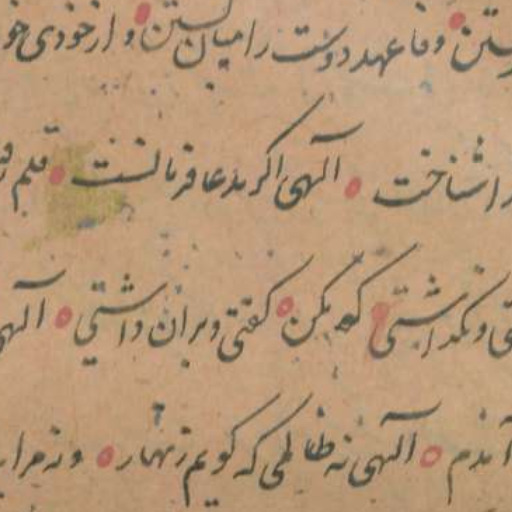 وفا عهد دوست را میان بستن و از خودی خو
شناخت الهی اکر بدعا فرمانست قلم ر
و نکذاشتی که بکن کفتی و بران داشتی الهی
آمدم الهی نه ظالمی که کویم زنهار و نه مرا